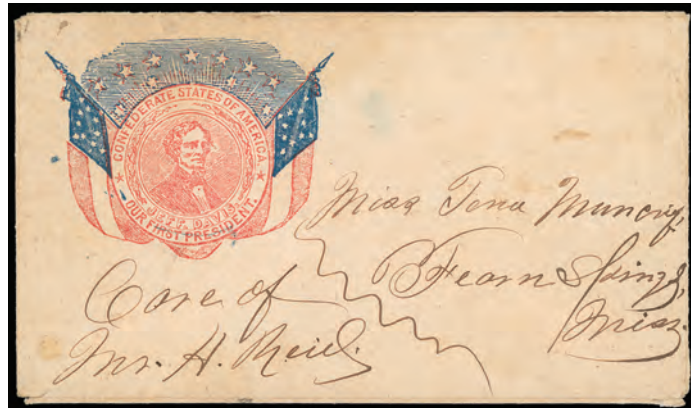 CONFEDERATE STATES OF AMERICA.
JEFF. DAVIS.
OUR FIRST PRESIDENT.
Miss Tena
Fearn Springs,
Miss.
Care of
Mr. H. Reid.